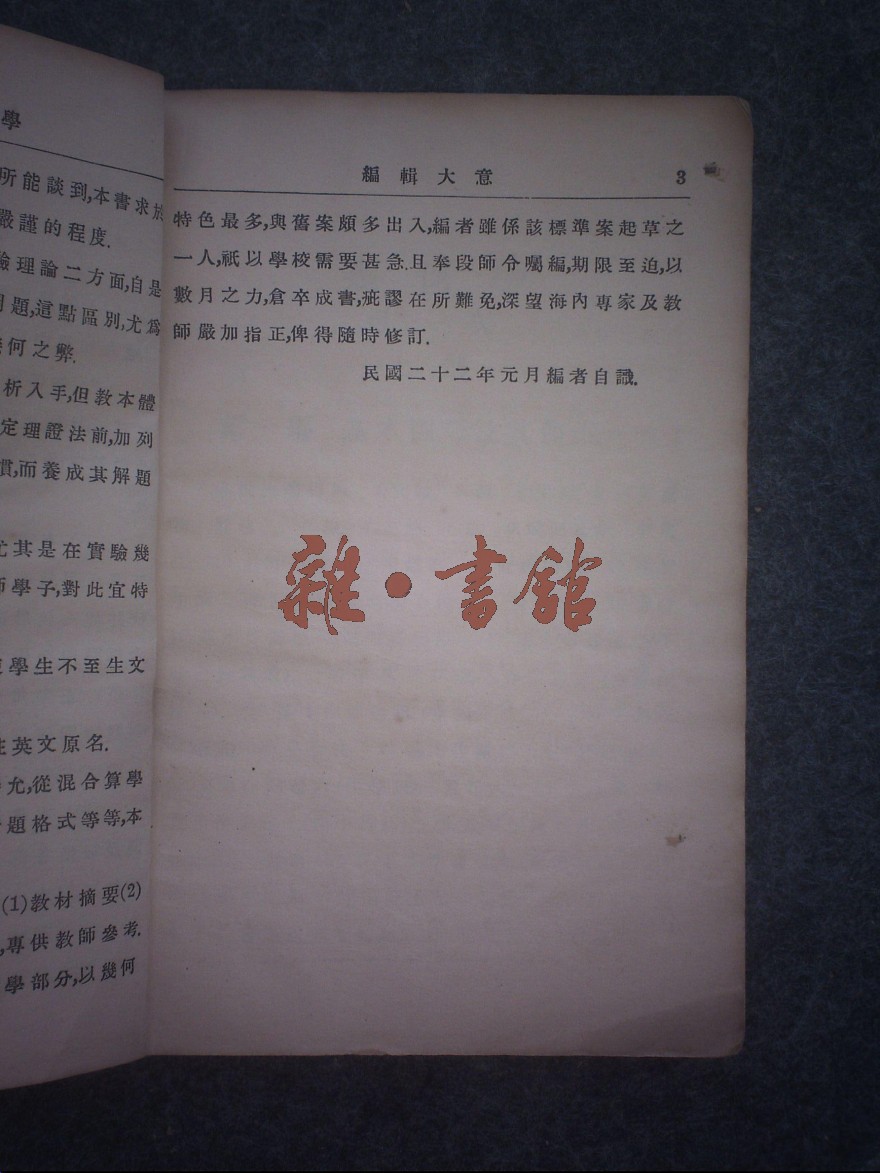 學
所能談到,本書求於
嚴謹的程度.
驗理論二方面,自是
題,這點區別,尤爲
幾何之弊.
析入手,但教本體
定理證法前,加列
慣,而養成其解題
尤其是在實驗幾
師學子,對此宜特
學生不至生文
註英文原名.
允,從混合算學
題格式等等,本
(1)教材摘要(2)
,專供教師參考.
學部分,以幾何
編輯大意 3
特色最多,與舊案頗多出入,編者雖係該標準案起草之
一人,祇以學校需要甚急.且奉段師令囑編,期限至迫,以
數月之力,倉卒成書,疵謬在所難免,深望海內專家及教
師嚴加指正,俾得隨時修訂.
民國二十二年元月編者自識.
雜·書館